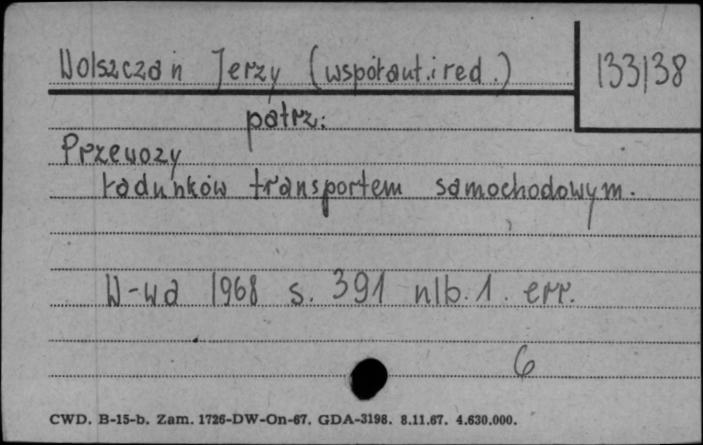 Wolszczan Jerzy (współaut. i red.) 133138
patrz:
Przewozy
ładunków transportem samochodowym.
W-wa 1968 s. 391 nlb. 1. err.
6
CWD. B-15-b. Zam. 1726-DW-On-67. GDA-3198. 8.11.67. 4.630.000.